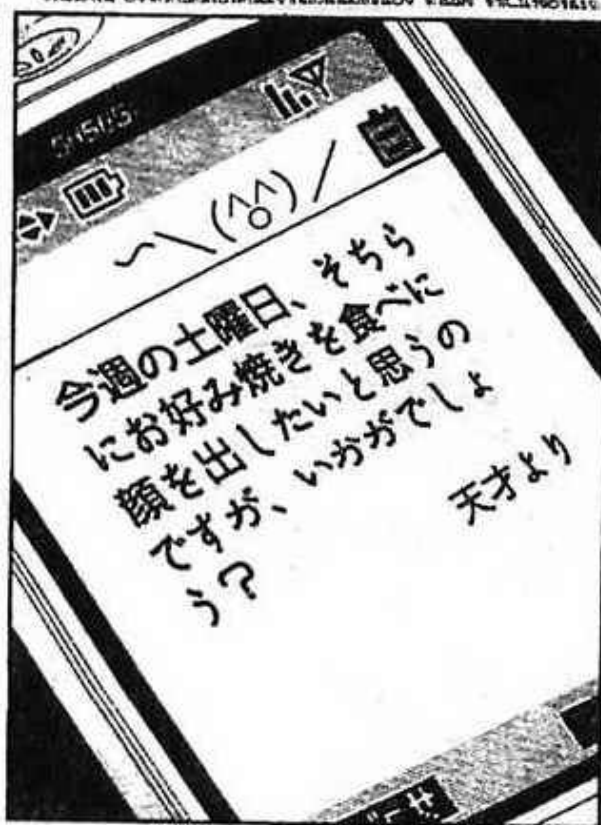 〜＼(^o^)／
今週の土曜日、そちら
にお好み焼きを食べに
顔を出したいと思うの
ですが、いかがでしょ
う？
天才より